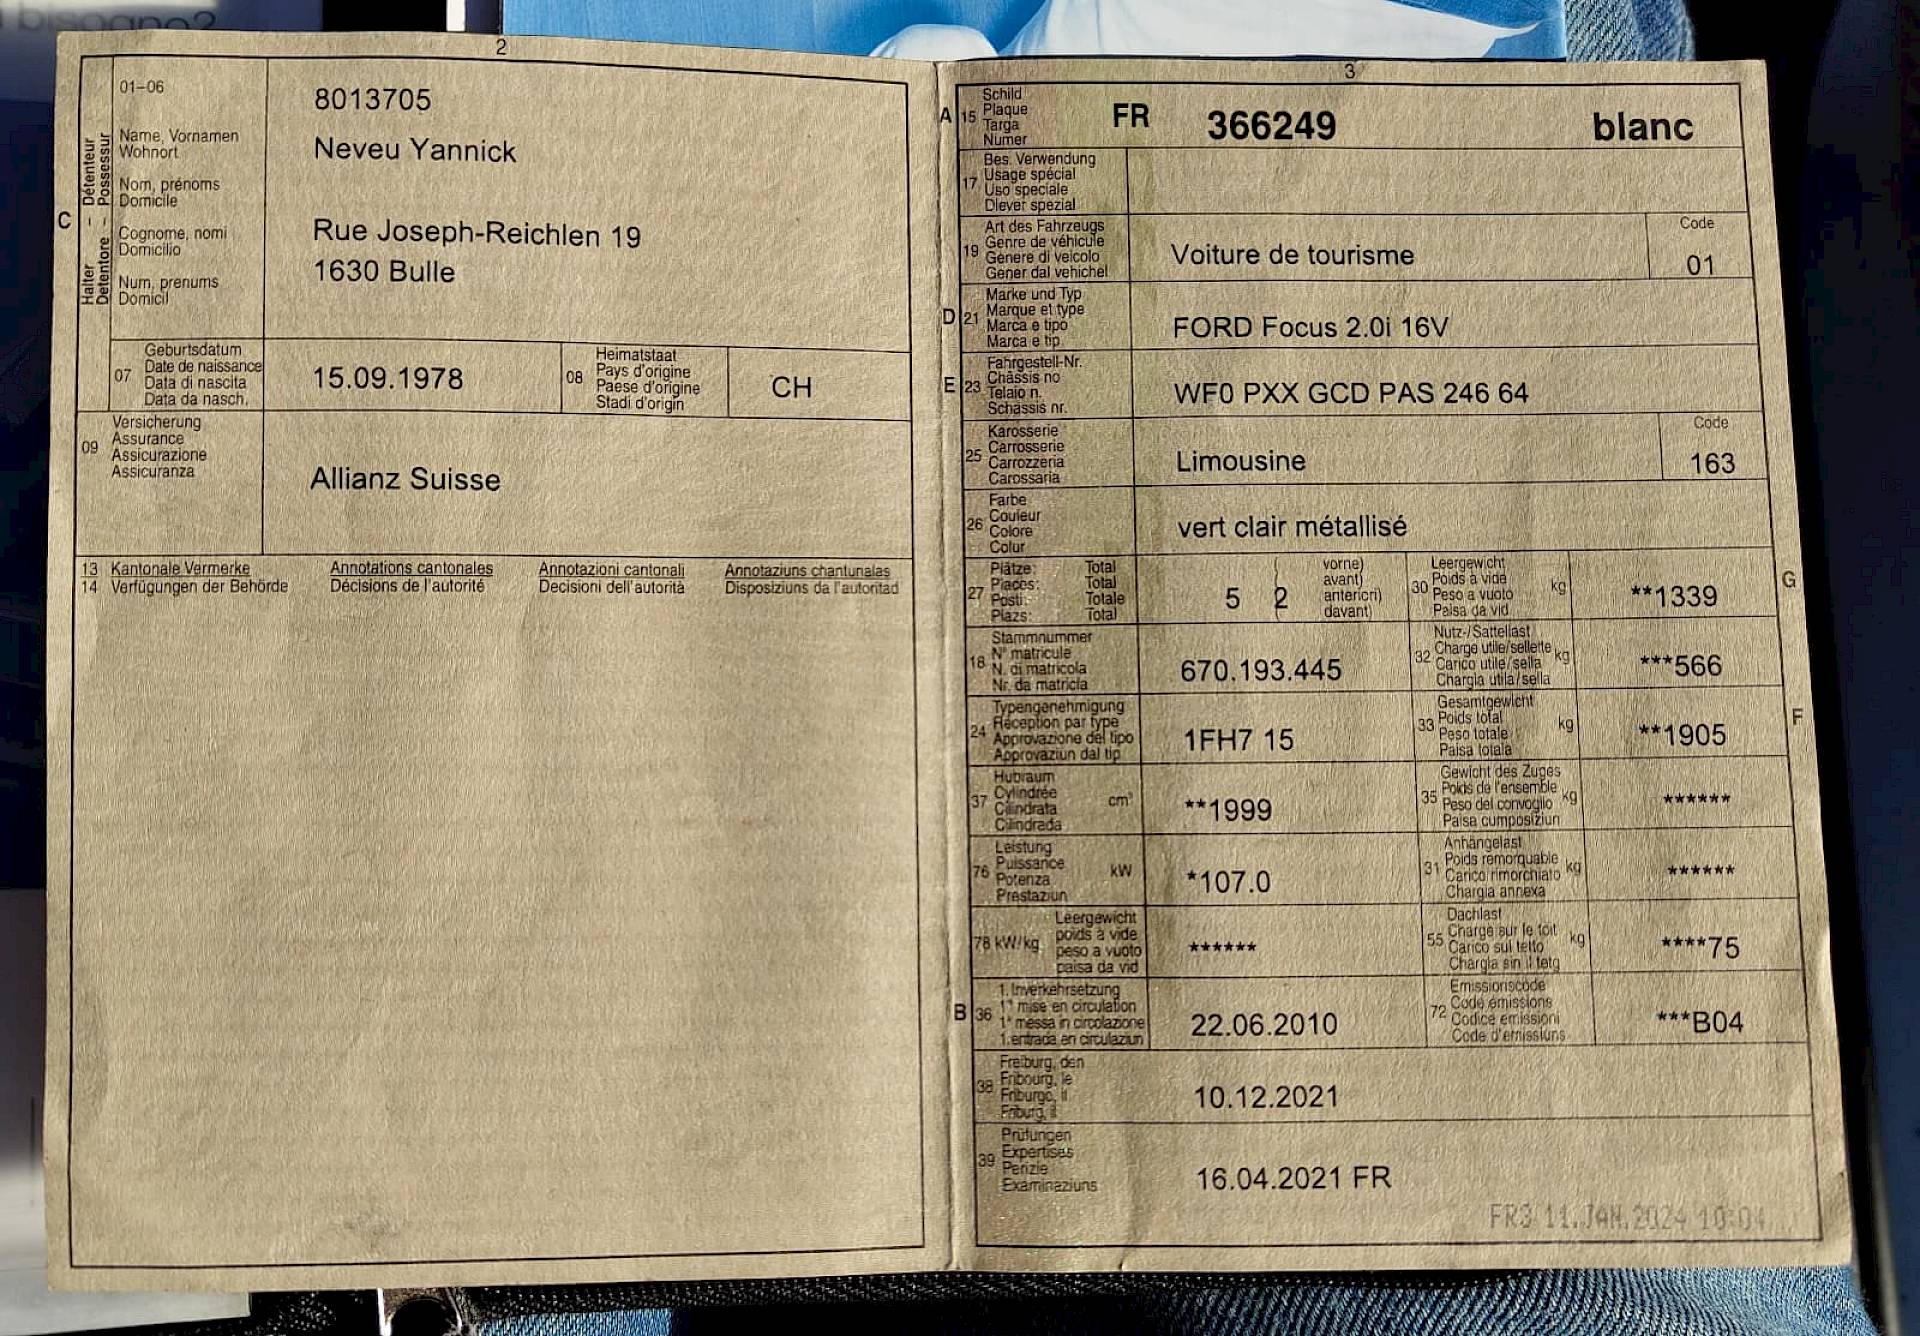 bisogno?
2
01-06
8013705
Name, Vornamen
Wohnort
Neveu Yannick
Nom, prénoms
Domicile
C
Halter – Détenteur
Detentore – Possessur
Cognome, nomi
Domicilio
Rue Joseph-Reichlen 19
1630 Bulle
Num, prenums
Domicil
07
Geburtsdatum
Date de naissance
Data di nascita
Data da nasch.
15.09.1978
08
Heimatstaat
Pays d'origine
Paese d'origine
Stadi d'origin
CH
09
Versicherung
Assurance
Assicurazione
Assicuranza
Allianz Suisse
13 Kantonale Vermerke Annotations cantonales Annotazioni cantonali Annotaziuns chantunalas
14 Verfügungen der Behörde Décisions de l'autorité Decisioni dell'autorità Disposiziuns da l'autoritad
3
A 15
Schild
Plaque
Targa
Numer
FR 366249 blanc
17
Bes. Verwendung
Usage spécial
Uso speciale
Diever spezial
19
Art des Fahrzeugs
Genre de véhicule
Genere di veicolo
Gener dal vehichel
Voiture de tourisme
Code
01
D 21
Marke und Typ
Marque et type
Marca e tipo
Marca e tip
FORD Focus 2.0i 16V
E 23
Fahrgestell-Nr.
Châssis no
Telaio n.
Schassis nr.
WF0 PXX GCD PAS 246 64
25
Karosserie
Carrosserie
Carrozzeria
Carossaria
Limousine
Code
163
26
Farbe
Couleur
Colore
Colur
vert clair métallisé
27
Plätze: Total
Places: Total
Posti: Totale
Plazs: Total
5 2
vorne)
avant)
anteriori)
davant)
30
Leergewicht
Poids à vide kg
Peso a vuoto
Paisa da vid
**1339
G
18
Stammnummer
N° matricule
N. di matricola
Nr. da matricla
670.193.445
32
Nutz-/Sattellast
Charge utile/sellette kg
Carico utile/sella
Chargia utila/sella
***566
24
Typengenehmigung
Réception par type
Approvazione del tipo
Approvaziun dal tip
1FH7 15
33
Gesamtgewicht
Poids total kg
Peso totale
Paisa totala
**1905
F
37
Hubraum
Cylindrée cm³
Cilindrata
Cilindrada
**1999
35
Gewicht des Zuges
Poids de l'ensemble kg
Peso del convoglio
Paisa cumposiziun
******
76
Leistung
Puissance kW
Potenza
Prestaziun
*107.0
31
Anhängelast
Poids remorquable kg
Carico rimorchiato
Chargia annexa
******
78 kW/kg
Leergewicht
poids à vide
peso a vuoto
paisa da vid
******
55
Dachlast
Charge sur le toit kg
Carico sul tetto
Chargia sin il tetg
****75
B 36
1. Inverkehrsetzung
1re mise en circulation
1a messa in circolazione
1. entrada en circulaziun
22.06.2010
72
Emissionscode
Code émissions
Codice emissioni
Code d'emissiuns
***B04
38
Freiburg, den
Fribourg, le
Friburgo, il
Friburg, il
10.12.2021
39
Prüfungen
Expertises
Perizie
Examinaziuns
16.04.2021 FR
FR3 11.JAN.2024 10:04